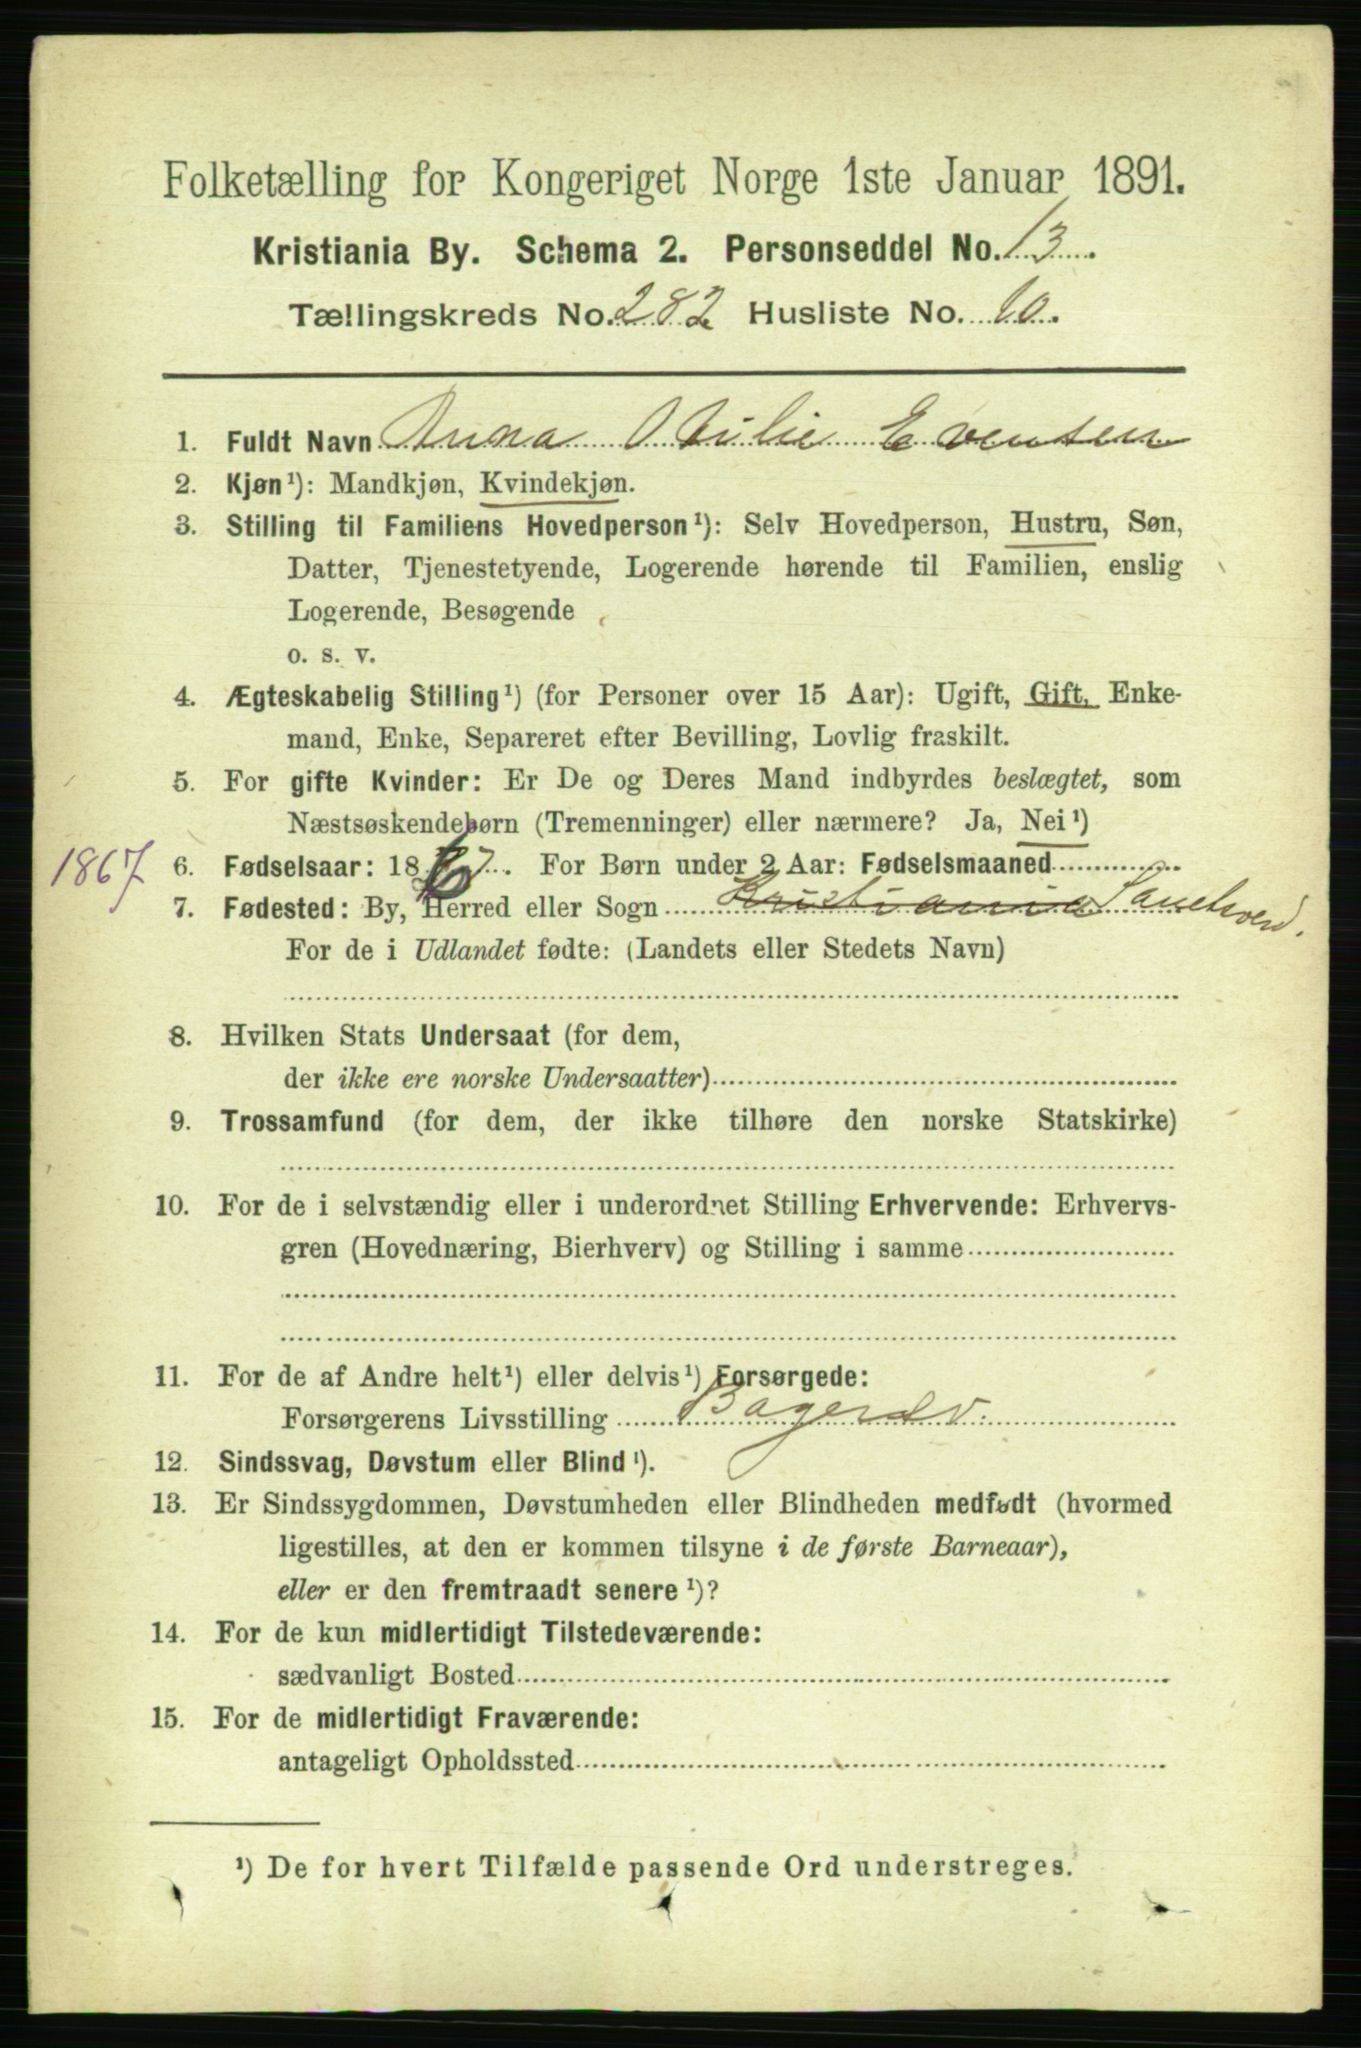 Folketælling for Kongeriget Norge 1ste Januar 1891.
Kristiania By. Schema 2. Personseddel No. 13.
Tællingskreds No. 282 Husliste No. 10.
1. Fuldt Navn Anna Otilie Evensen
2. Kjøn¹): Mandkjøn, Kvindekjøn.
3. Stilling til Familiens Hovedperson¹): Selv Hovedperson, Hustru, Søn,
Datter, Tjenestetyende, Logerende hørende til Familien, enslig
Logerende, Besøgende
o. s. v.
4. Ægteskabelig Stilling¹) (for Personer over 15 Aar): Ugift, Gift, Enke-
mand, Enke, Separeret efter Bevilling, Lovlig fraskilt.
5. For gifte Kvinder: Er De og Deres Mand indbyrdes beslægtet, som
Næstsøskendebørn (Tremenninger) eller nærmere? Ja, Nei¹)
1867 6. Fødselsaar: 1867. For Børn under 2 Aar: Fødselsmaaned
7. Fødested: By, Herred eller Sogn Kristiania
For de i Udlandet fødte: (Landets eller Stedets Navn)
8. Hvilken Stats Undersaat (for dem,
der ikke ere norske Undersaatter)
9. Trossamfund (for dem, der ikke tilhøre den norske Statskirke)
10. For de i selvstændig eller i underordnet Stilling Erhvervende: Erhvervs-
gren (Hovednæring, Bierhverv) og Stilling i samme
11. For de af Andre helt¹) eller delvis¹) Forsørgede:
Forsørgerens Livsstilling Bagersv.
12. Sindssvag, Døvstum eller Blind¹).
13. Er Sindssygdommen, Døvstumheden eller Blindheden medfødt (hvormed
ligestilles, at den er kommen tilsyne i de første Barneaar),
eller er den fremtraadt senere¹)?
14. For de kun midlertidigt Tilstedeværende:
sædvanligt Bosted
15. For de midlertidigt Fraværende:
antageligt Opholdssted
¹) De for hvert Tilfælde passende Ord understreges.